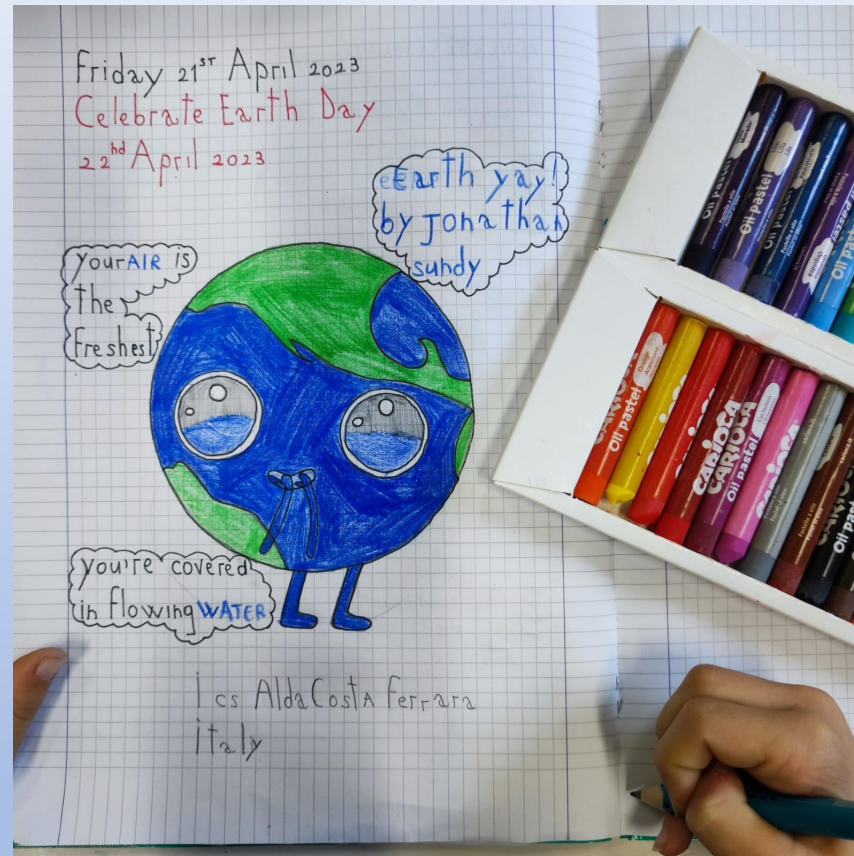 Friday 21ST April 2023
Celebrate Earth Day
22nd April 2023
eEarth yay!
by Jonathan
sundy
your AIR is
the
freshest
you're covered
in flowing WATER
i cs Alda Costa Ferrara
italy
Oil pastel
Oil pastel
Oil pastel
Oil pastel
CARIOCA
Oil pastel
CARIOCA
CARIOCA
Oil pastel
CARIOCA
Oil past